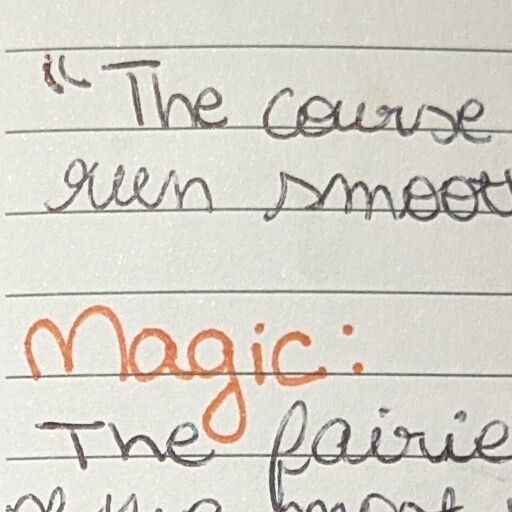 “The course
run smoot
Magic:
The fairie